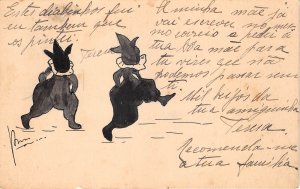 Estes diabinhos fui
eu tambem que
os pintei.
A minha mãe já
vai escrever no
no correio e pedi á
tua Bôa mãe para
tu vires que nós
podemos passar
Mil beijos da
tua amiguinha
Teresa
Recomenda-me
a tua familia